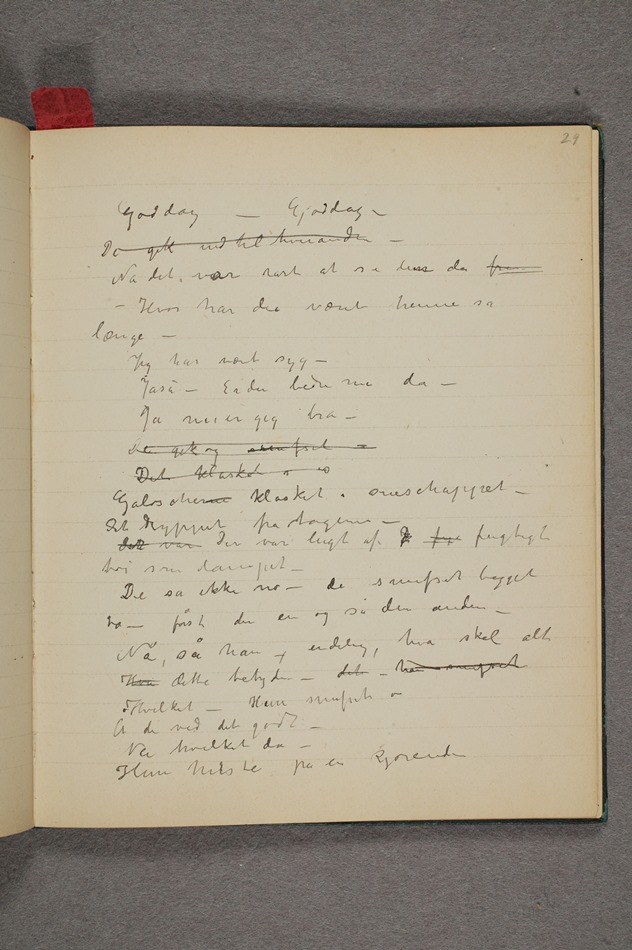 29
Goddag — Gjoddag —
De gik ind til hverandre —
Nå det var rart at se da
— Hvor har du været henne så
længe —
Jeg har vært syg —
Jaså — Er du bedre nu da —
Ja nu er jeg bra —
De gik og
Det klasket
Galoscherne klasket i sneschappset —
Det dryppet fra tagene —
det var Der var lugt af fugtigt
tøi som dampet —
De sa ikke no — de snufset begge
to — først den ene og så den anden —
Nå, så han endelig, hva skal alt
Hva dette betyde — det — han snufset
Hvilket — Hun snufset
Å du ved det godt —
Nei hvilket da —
Hun hilste på en kjørende